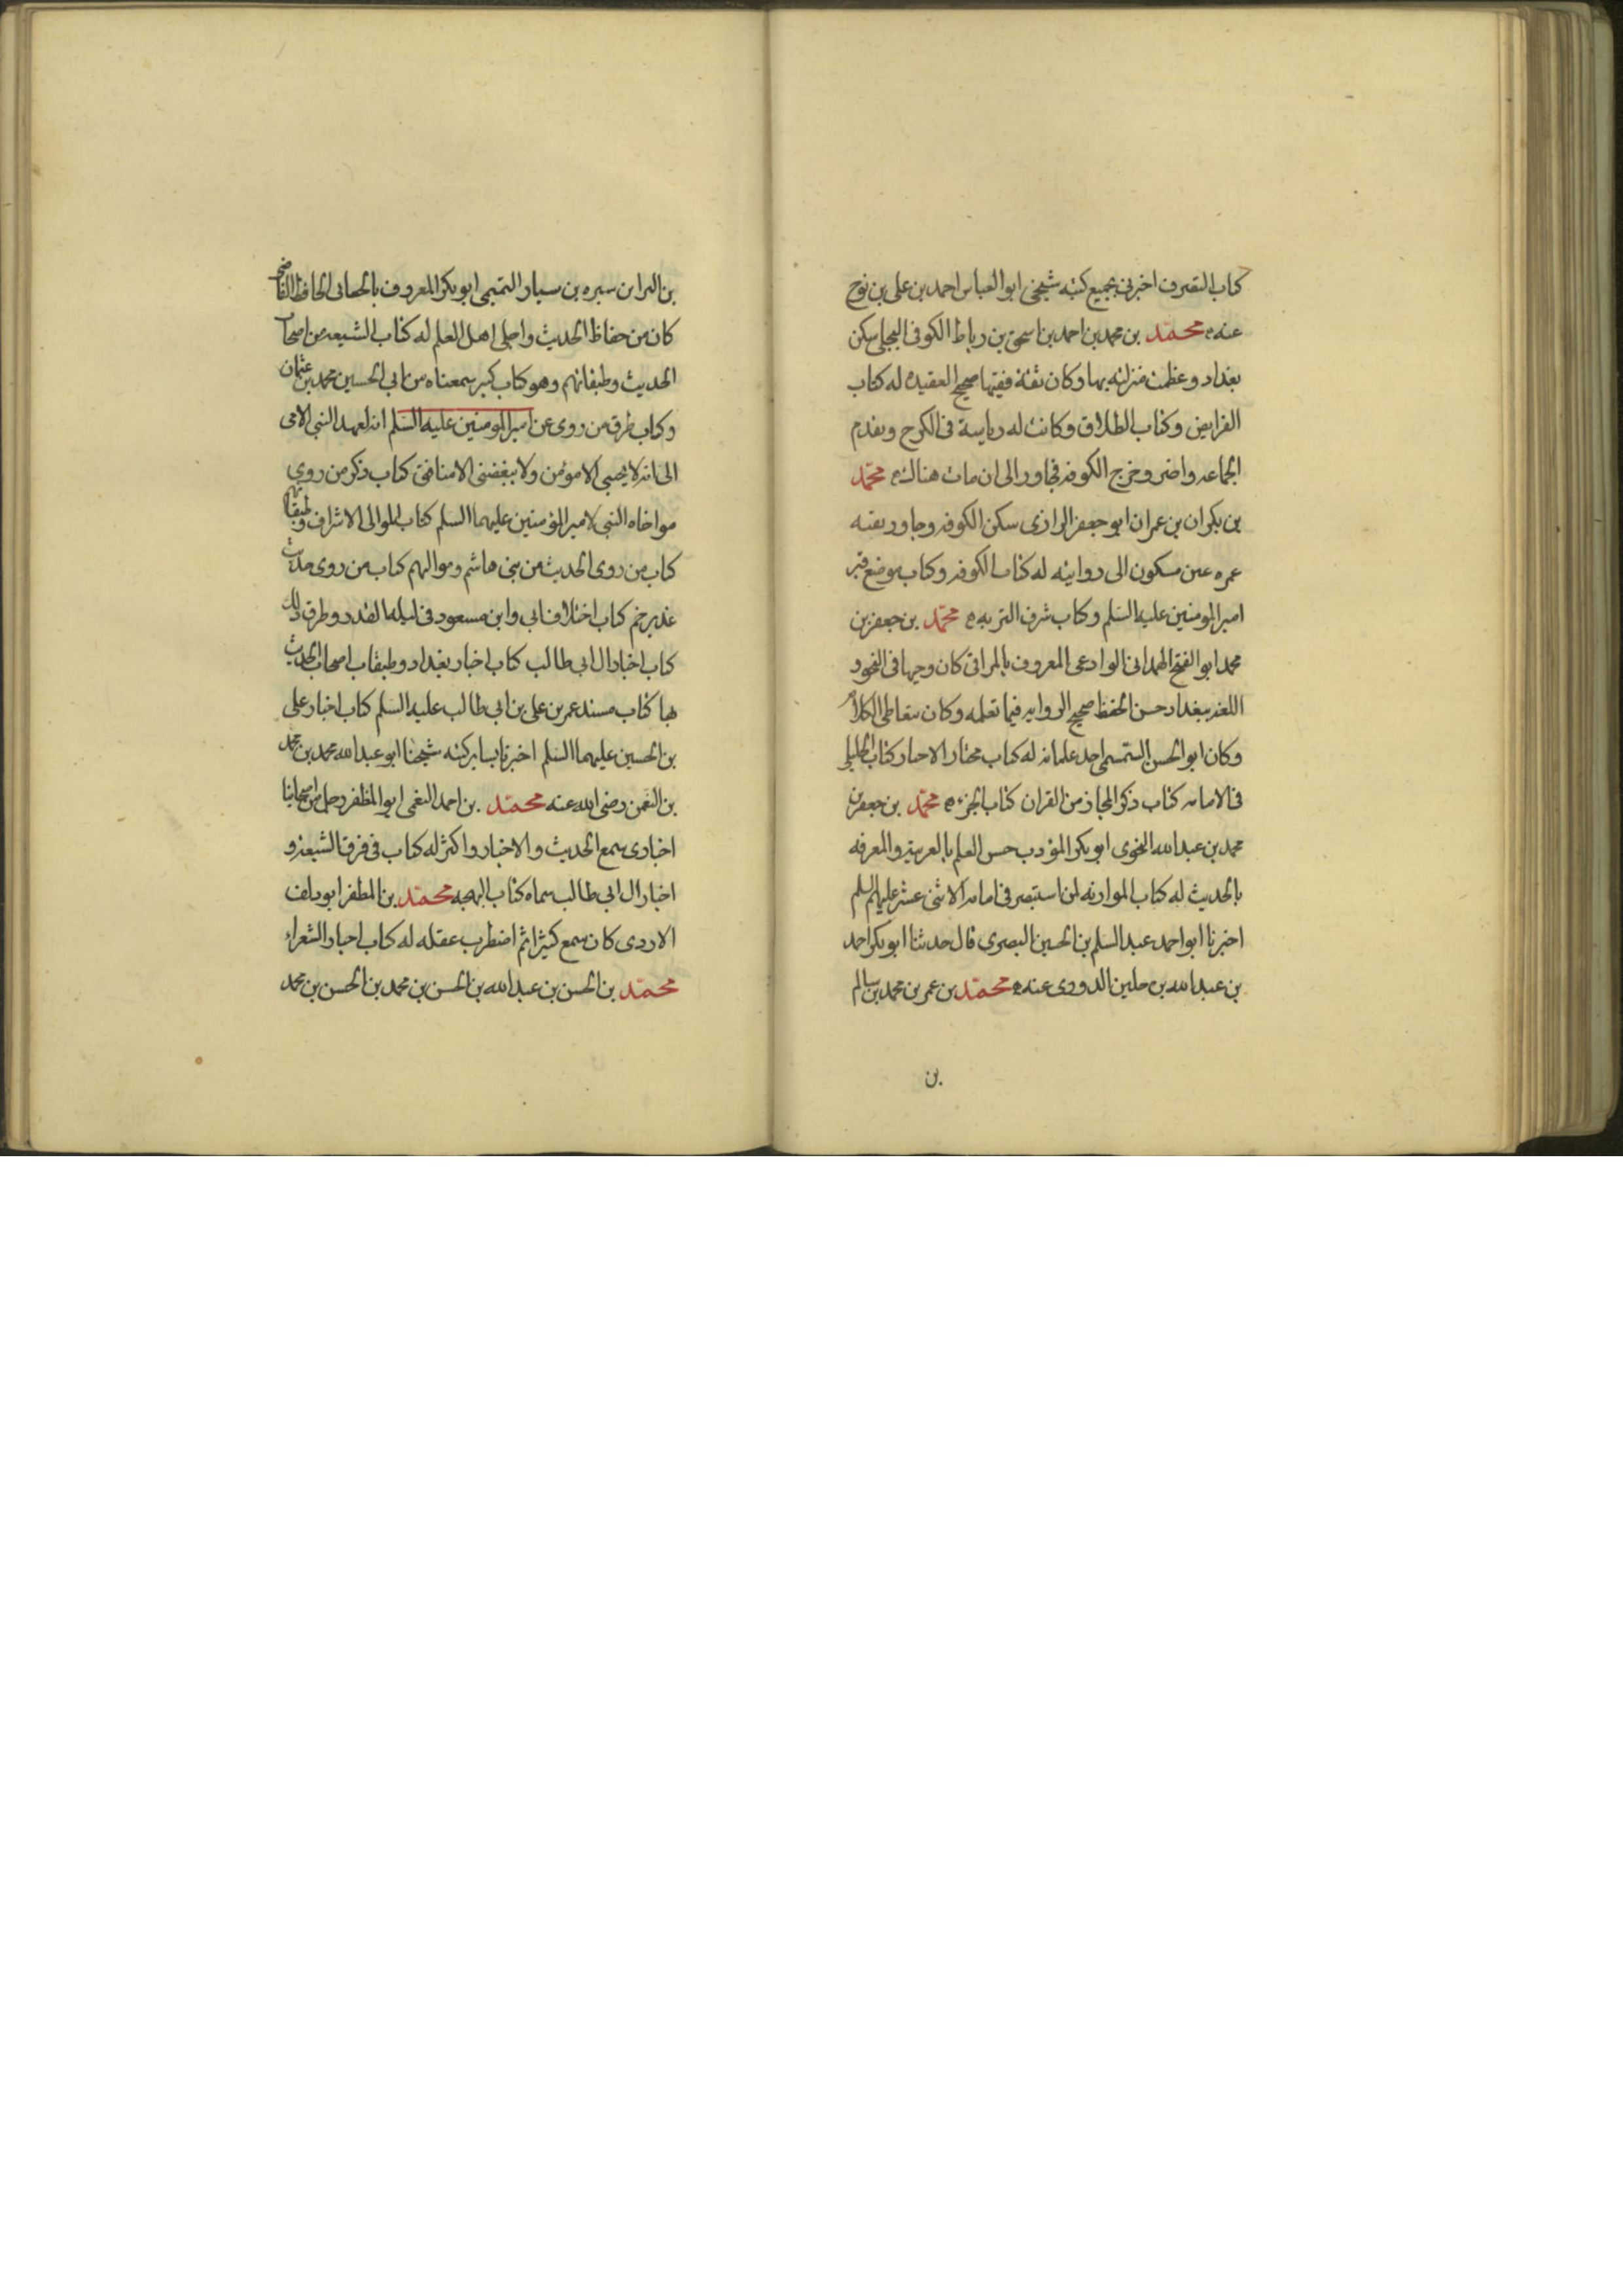 كتاب التصرف اخبرنى بجميع كتبه شيخى ابو العباس احمد بن على بن نوح
عنه محمد بن محمد بن احمد بن اسحق بن رباط الكوفى البجلى سكن
بغداد وعظمت منزلته بها وكان ثقة فقيها صحيح العقيده له كتاب
الفرايض وكتاب الطلاق وكانت له رياسة فى الكرخ وتقدم
الجماعه واضر وخرج الكوفه فجاور الى ان مات هنالك محمد
بن بكران بن عمران ابو جعفر الرازى سكن الكوفه وجاور بقيه
عمره عين مسكون الى روايته له كتاب الكوفه وكتاب موضع قبر
امير المومنين عليه السلم وكتاب شرف التربه محمد بن جعفر بن
محمد ابو الفتح الهمدانى الوادعى المعروف بالمراغى كان وجيها فى النحو و
اللغه ببغداد حسن الحفظ صحيح الروايه فيما نعلمه وكان يتعاطى الكلام
وكان ابو الحسن السمسمى احد غلمانه له كتاب مختار الاخبار كتاب الخليلى
فى الامامه كتاب ذكر المجاز من القران كتاب الجزء محمد بن جعفر بن
محمد بن عبد الله النحوى ابو بكر المؤدب حسن العلم بالعربية والمعرفه
بالحديث له كتاب الموازنه لمن استبصر فى امامه الاثنى عشر عليهم السلم
اخبرنا ابو احمد عبد السلم بن الحسين البصرى قال حدثنا ابو بكر احمد
بن عبد الله بن جلين الدورى عنه محمد بن عمر بن محمد بن سالم
بن
بن البرا بن سبره بن سيار التميمى ابو بكر المعروف بالجعابى الحافظ القاضى
كان من حفاظ الحديث واجلى اهل العلم له كتاب الشيعه من اصحاب
الحديث وطبقاتهم وهو كتاب كبير سمعناه من ابى الحسين محمد بن عثمان
وكتاب طرق من روى عن امير المومنين عليه السلم انه لعهد النبى الامى
الى انه لا يحبى الا مومن ولا يبغضنى الا منافق كتاب ذكر من روى
مواخاه النبى لامير المؤمنين عليهما السلم كتاب الموالى الاشراف وطبقاتهم
كتاب من روى الحديث من بنى هاشم ومواليهم كتاب من روى حديث
غدير خم كتاب اختلاف ابى وابن مسعود فى ليله القدر وطرق ذلك
كتاب اخبار ال ابى طالب كتاب اخبار بغداد وطبقات اصحاب الحديث
بها كتاب مسند عمر بن على بن ابى طالب عليه السلم كتاب اخبار على
بن الحسين عليهما السلم اخبرنا بساير كتبه شيخنا ابو عبد الله محمد بن محمد
بن النعمن رضى الله عنه محمد بن احمد النعمى ابو المظفر رجل من اصحابنا
اخبارى سمع الحديث والاخبار واكثر له كتاب فى فرق الشيعة و
اخبار ال ابى طالب سماه كتاب البهجه محمد بن المظفر ابو دلف
الازدى كان سمع كثيرا ثم اضطرب عقله له كتاب اخبار الشعراء
محمد بن الحسن بن عبد الله بن الحسن بن محمد بن الحسن بن محمد